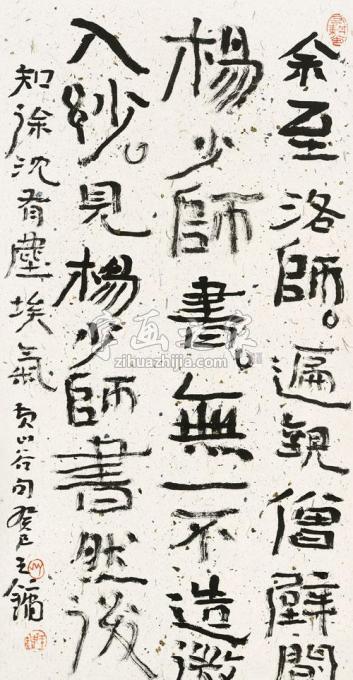 余至洛師。遍觀僧壁間
楊少師書。無一不造微
入妙。見楊少師書然後
知徐沈有塵埃氣 黃山谷句 癸巳 之鏞
字画之家
zihuazhijia.com